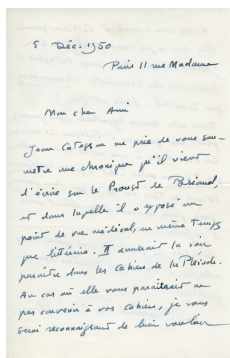 5 Déc. 1950
Paris 11 rue Madame
Mon cher Ami
Jean me prie de vous sou-
mettre une chronique qu'il vient
d'écrire sur le Proust de Briand,
et dans laquelle il a exposé un
point de vue médical, en même temps
que littéraire. Il aimerait la voir
paraître dans les Cahiers de la Pléiade.
Au cas où elle vous paraîtrait ne
pas convenir à vos cahiers, je vous
serai reconnaissant de bien vouloir